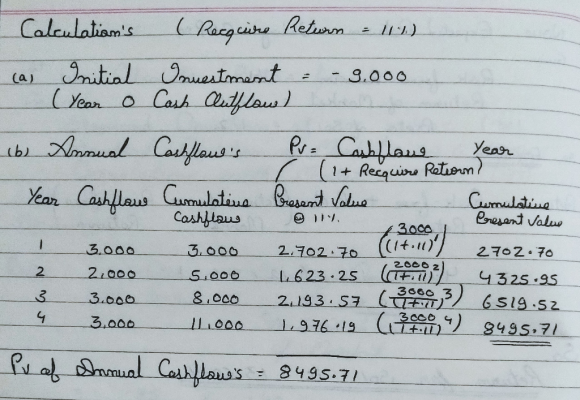 Calculation's ( Recquire Return = 11%)
(a) Initial Investment = - 9.000
( Year 0 Cash Outflow )
(b) Annual Cashflow's Pv = Cashflow Year
(1 + Recquire Return)
Year Cashflow Cumulative Present Value Cumulative
Cashflow @ 11% Present Value
1 3.000 3.000 2.702.70 (3000/(1+.11)1) 2702.70
2 2,000 5,000 1,623.25 (2000/(1+.11)2) 4325.95
3 3.000 8,000 2,193.57 (3000/(1+.11)3) 6519.52
4 3.000 11,000 1.976.19 (3000/(1+.11)4) 8495.71
Pv of Annual Cashflow's = 8495.71